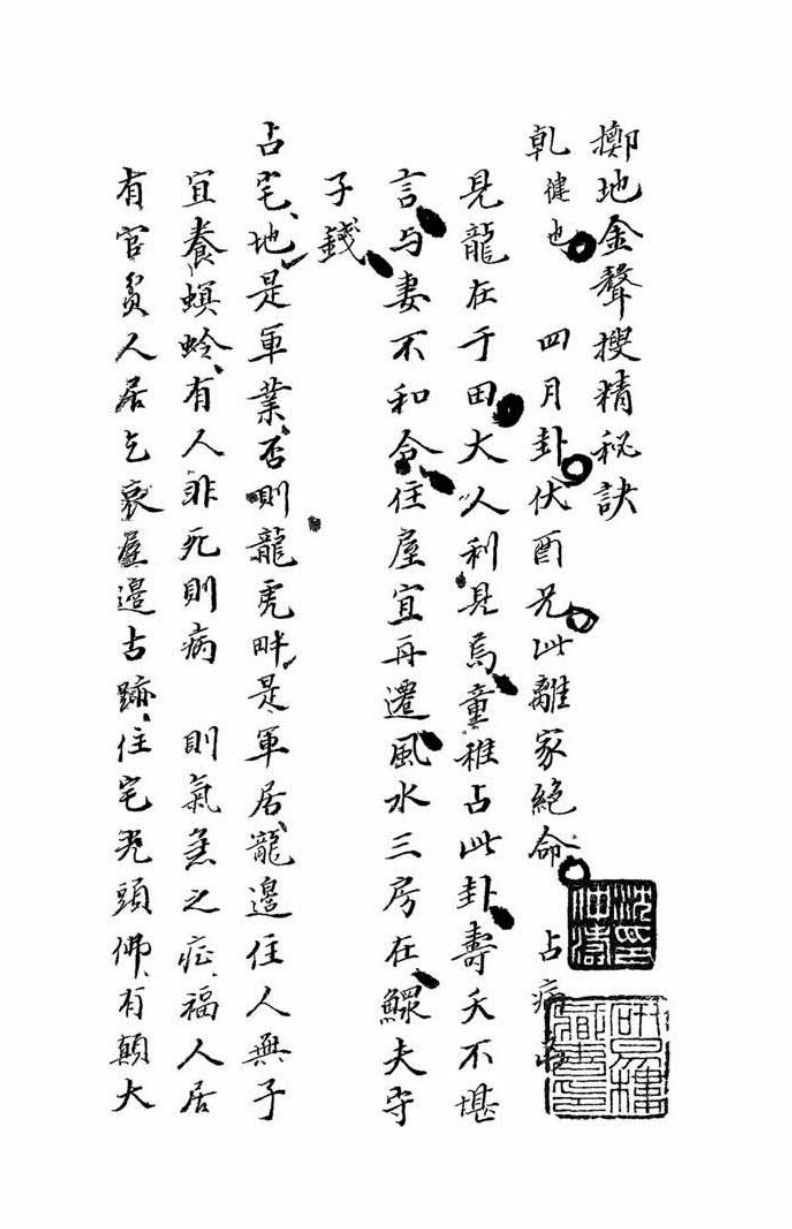 擲地金聲搜精秘訣
乾健也 四月卦伏酉兄此離家絕命 占病
見龍在于田大人利見焉童稚占此卦壽夭不堪
言与妻不和合住屋宜再遷風水三房在鰥夫守
子錢
占宅地是軍業否則龍虎畔是軍居龍邊住人無子
宜養螟蛉有人非死則病 則氣羔之症福人居
有官貧人居乞裒屋邊古跡住宅光頭佛有顛大
沈仲濤印
研易樓藏書印